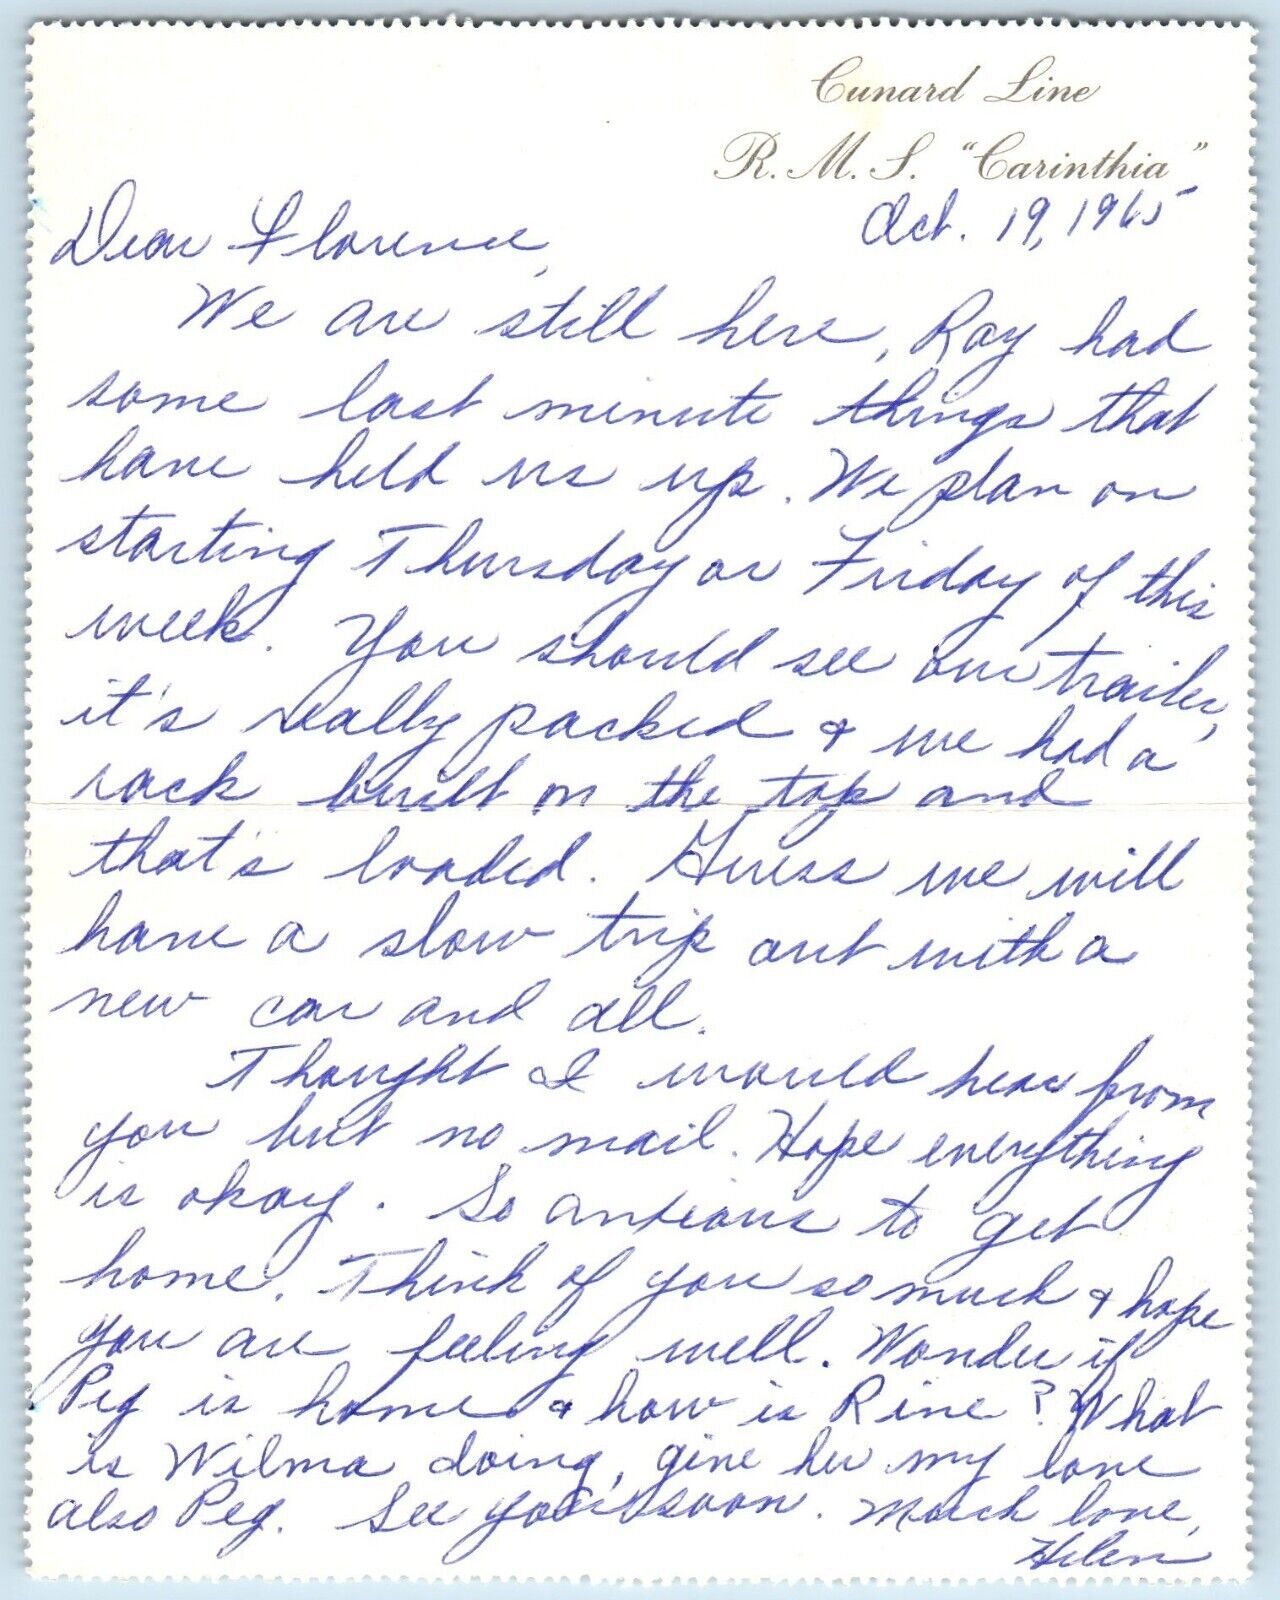 Cunard Line
R. M. S. "Carinthia"
Oct. 19, 1965
Dear Florence,
We are still here, Ray had
some last minute things that
have held us up. We plan on
starting Thursday or Friday of this
week. You should see our trailer,
it's really packed & we had a
rack built on the top and
that's loaded. Guess we will
have a slow trip out with a
new car and all.
Thought I would hear from
you but no mail. Hope everything
is okay. So anxious to get
home. Think of you so much & hope
you are feeling well. Wonder if
Peg is home & how is Rine? What
is Wilma doing, give her my love
also Peg. See you soon. Much love,
Helen